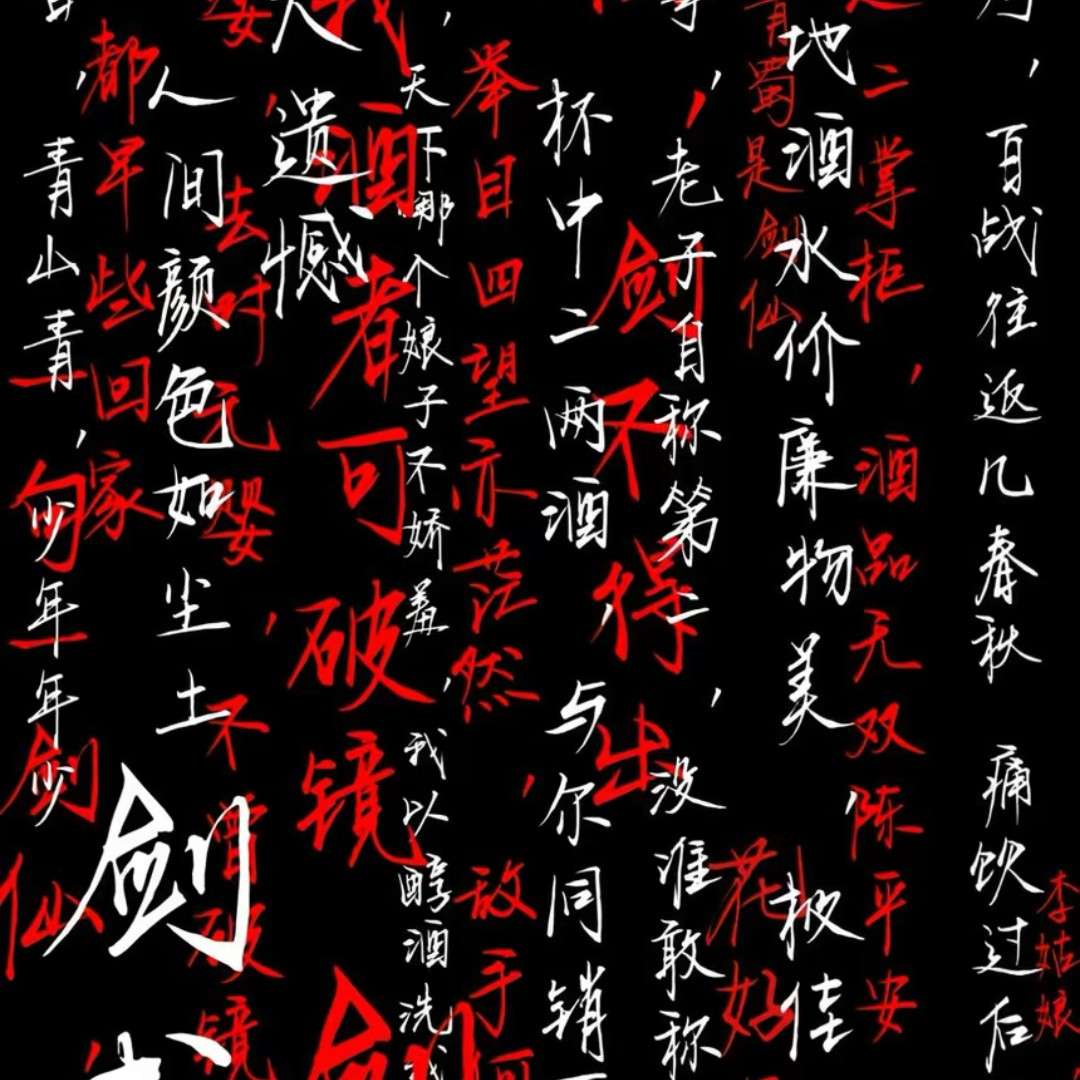 ，百战往返几春秋 痛饮过后
李姑娘
二掌柜，酒品无双陈平安
地酒水价廉物美
披佳
青蜀是剑仙
花好
，老子自称第二，没准敢称
剑不得出
杯中二两酒 与尔同销
举目四望亦茫然，敌手
天下哪个娘子不娇羞，我以醇酒洗我
我酒者可破镜
剑
遗憾
去时元婴，不曾破镜
人间颜色如尘土
剑
都早些回家
，青山青青，少年年少
一句一剑仙